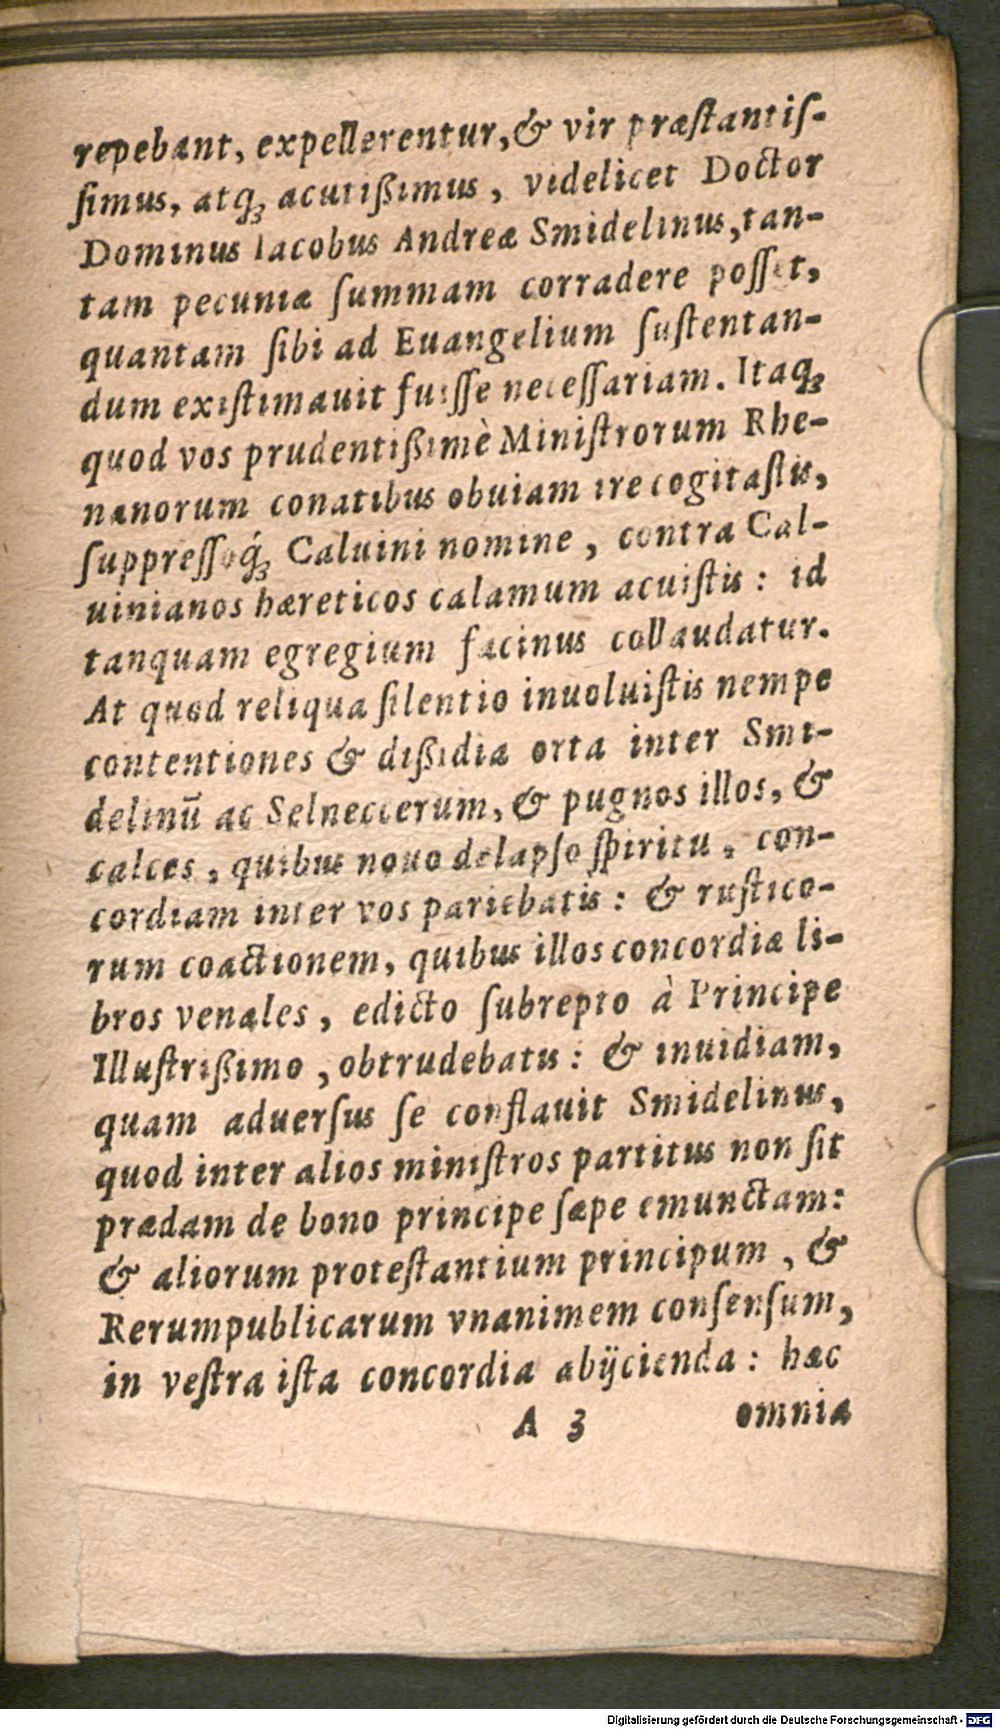 repebant, expellerentur, & vir præstantiſ-
ſimus, atqꝫ acutißimus, videlicet Doctor
Dominus Iacobus Andreæ Smidelinus, tan-
tam pecuniæ ſummam corradere poſſet,
quantam ſibi ad Euangelium ſuſtentan-
dum exiſtimauit fuiſſe neceſſariam. Itaqꝫ
quod vos prudentißimè Miniſtrorum Rhe-
nanorum conatibus obuiam ire cogitaſtis,
ſuppreſſoq́ꝫ Caluini nomine, contra Cal-
uinianos hæreticos calamum acuiſtis: id
tanquam egregium facinus collaudatur.
At quod reliqua ſilentio inuoluiſtis nempe
contentiones & dißidia orta inter Smi-
delinū ac Selneccerum, & pugnos illos, &
calces, quibus nouo delapſo ſpiritu, con-
cordiam inter vos pariebatis: & ruſtico-
rum coactionem, quibus illos concordiæ li-
bros venales, edicto ſubrepto à Principe
Illuſtrißimo, obtrudebatis: & inuidiam,
quam aduerſus ſe conflauit Smidelinus,
quod inter alios miniſtros partitus non ſit
prædam de bono principe ſæpe emunctam:
& aliorum proteſtantium principum, &
Rerumpublicarum vnanimem conſenſum,
in veſtra iſta concordia abijcienda: hæc
A 3 omnia
Digitalisierung gefördert durch die Deutsche Forschungsgemeinschaft - DFG